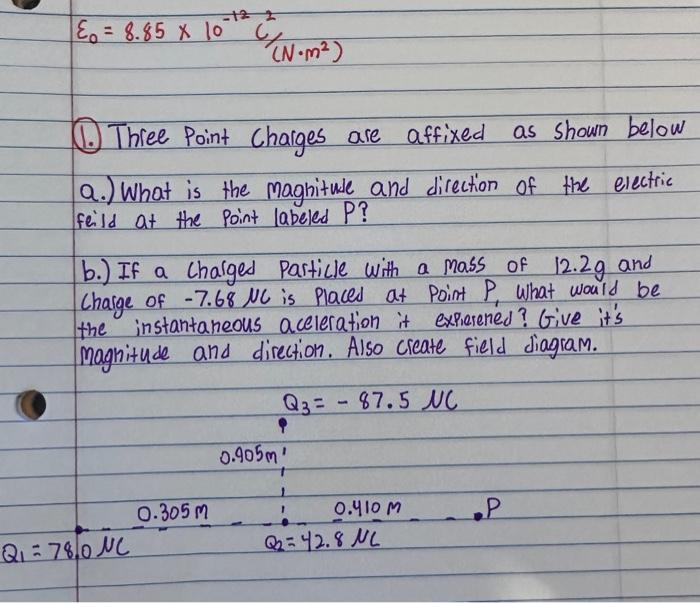 ε₀ = 8.85 x 10⁻¹² C²/(N·m²)
1. Three Point Charges are affixed as shown below
a.) What is the magnitude and direction of the electric
feild at the Point labeled P?
b.) If a Charged Particle with a mass of 12.2g and
Charge of -7.68 µC is Placed at Point P, what would be
the instantaneous aceleration it experened? Give it's
magnitude and direction. Also create field diagram.
Q3 = - 87.5 µC
0.905m
0.305m 0.410m .P
Q1 = 78.0 µC Q2 = 42.8 µC